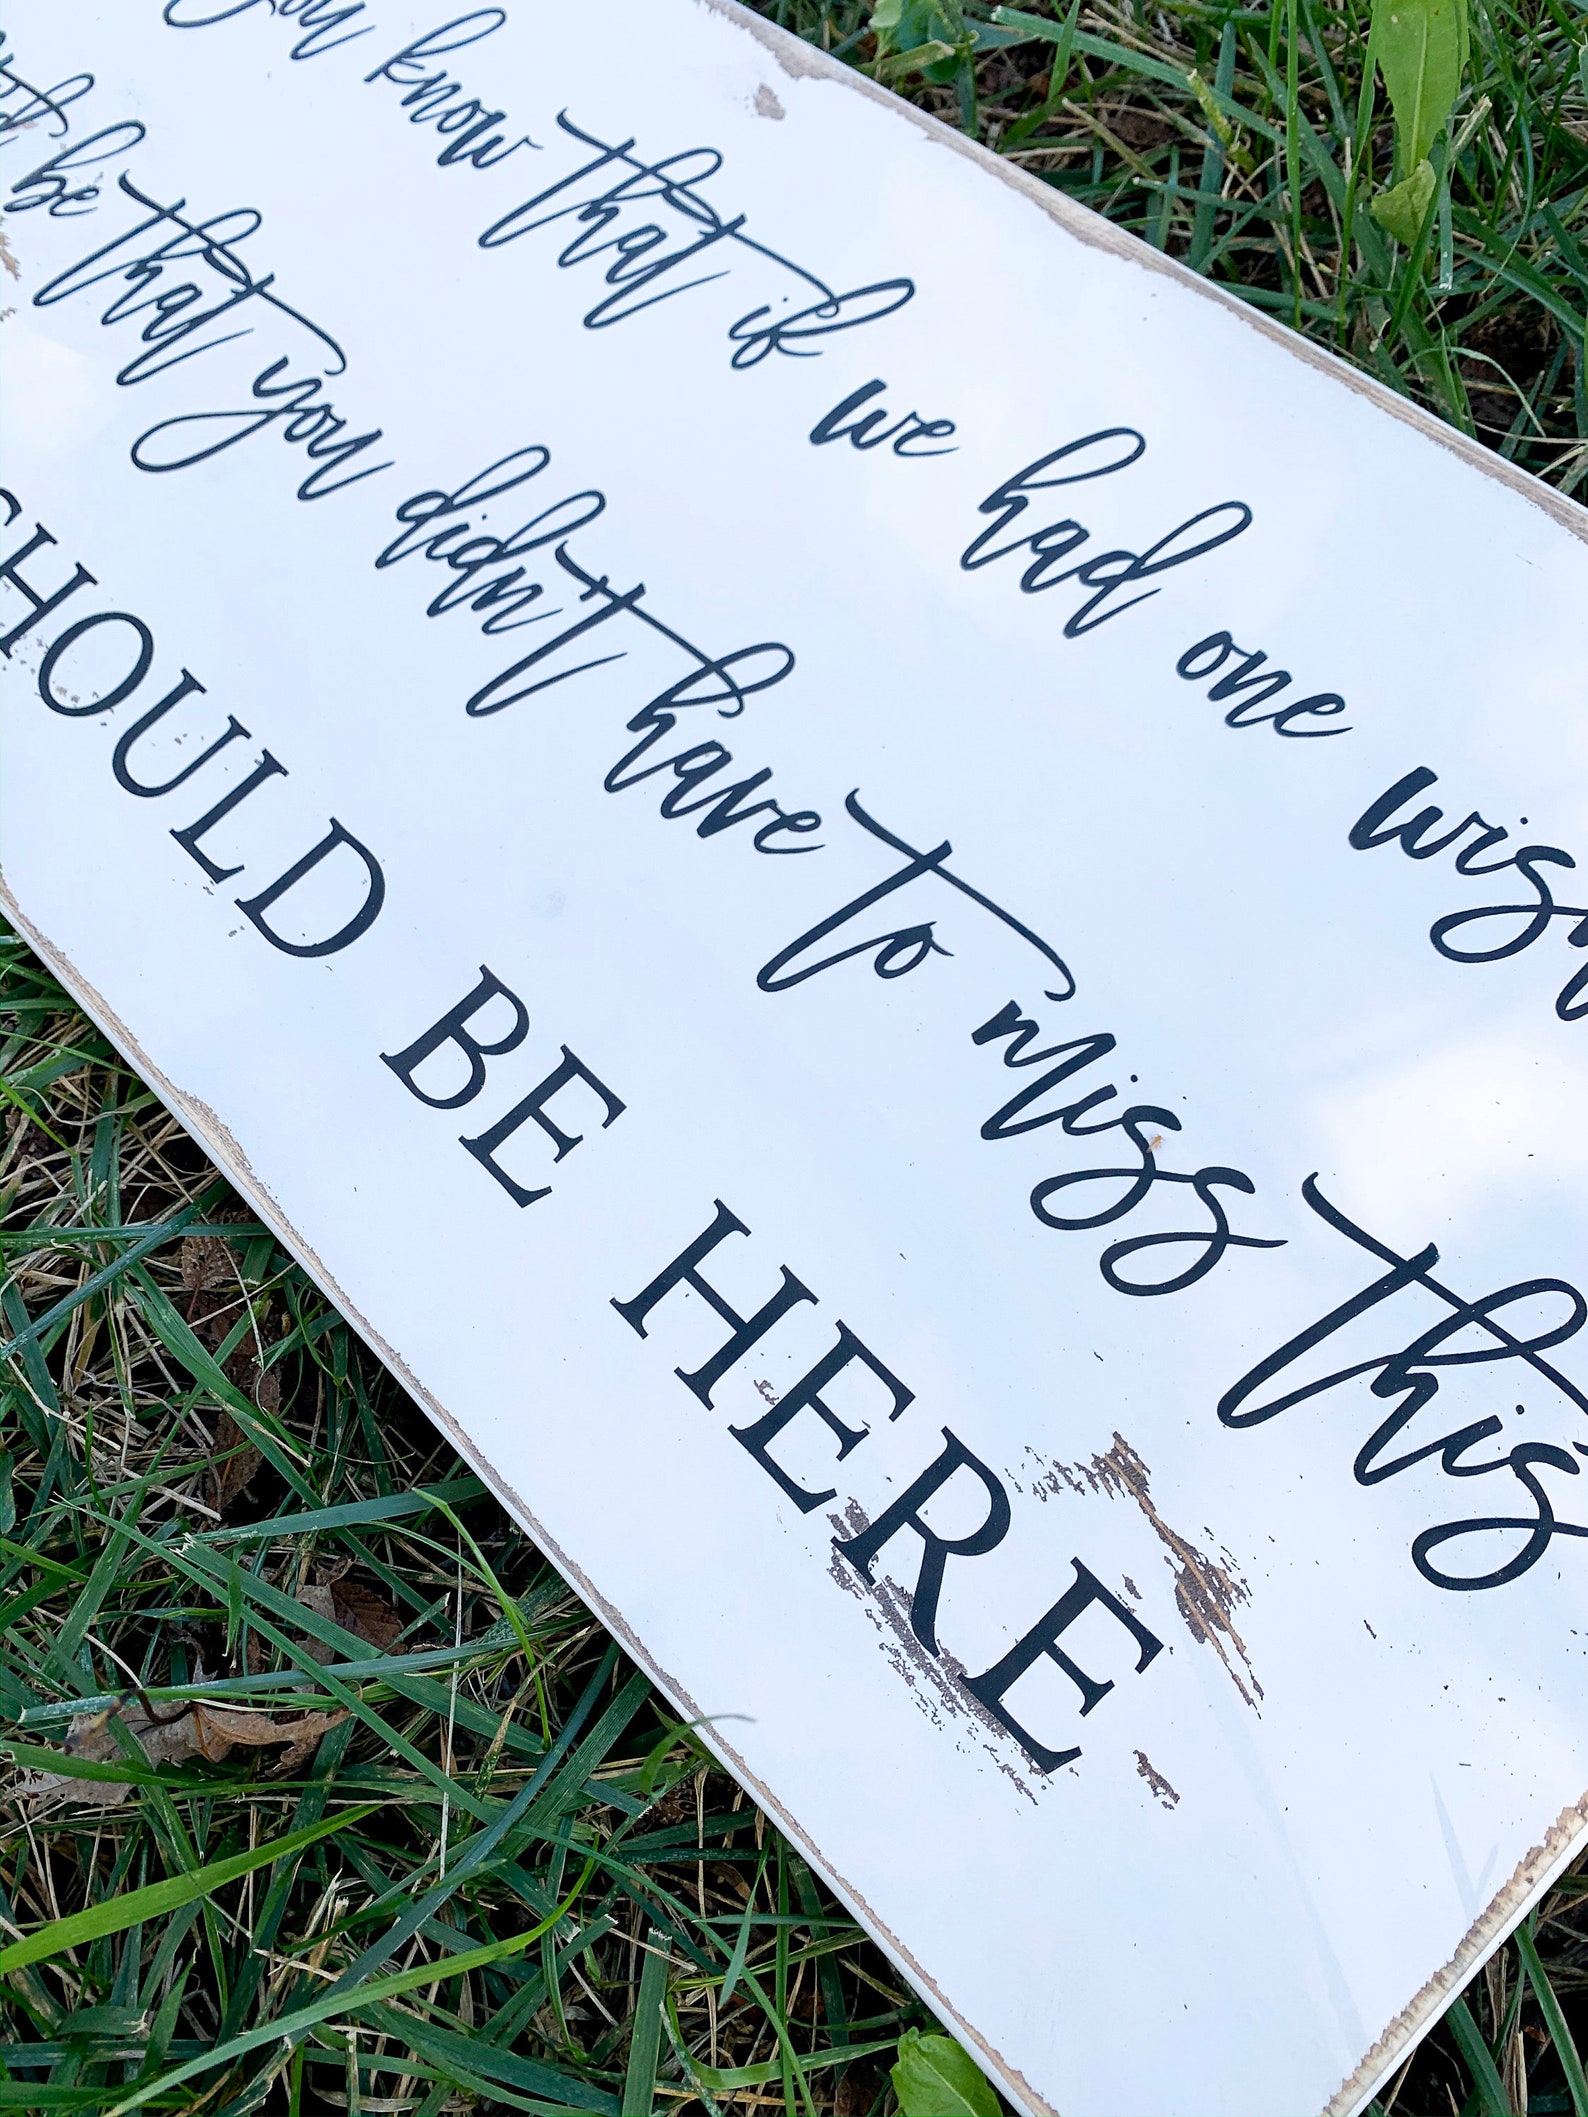 you know that if we had one wish
be that you didn't have to miss this
SHOULD BE HERE